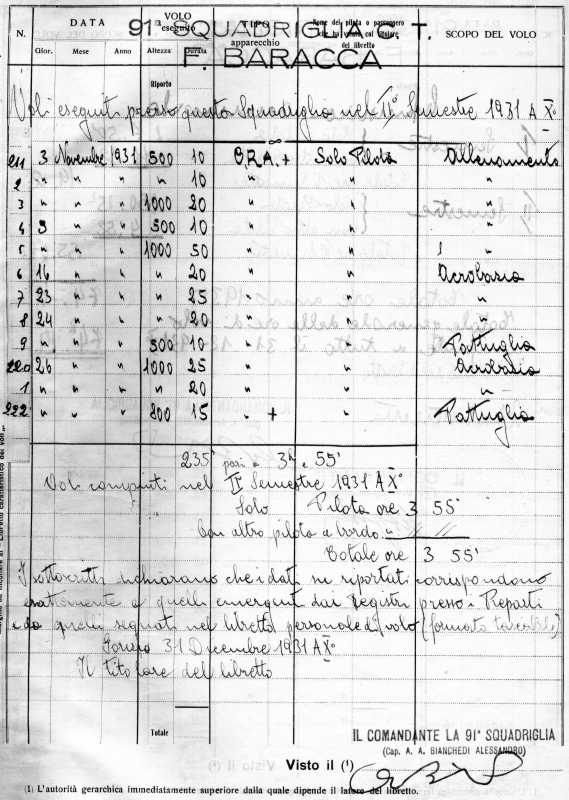 91ª SQUADRIGLIA C. T.
F. BARACCA
N.
DATA
VOLO eseguito
TIPO apparecchio
Nome del pilota o passeggero che ha volato col titolare del libretto
SCOPO DEL VOLO
Gior. Mese Anno Altezza Durata
Riporto
Voli eseguiti presso questa Squadriglia nel IIº Semestre 1931 A Xº
211 3 Novembre 1931 500 10 C.R.A. + Solo Pilota Allenamento
2 " " " " 10 " " "
3 " " " 1000 20 " " "
4 5 " " 500 10 " " "
5 " " " 1000 50 " " "
6 16 " " " 20 " " Acrobazia
7 23 " " " 25 " " "
8 24 " " " 20 " " "
9 " " " 500 10 " " Pattuglia
220 26 " " 1000 25 " " Acrobazia
1 " " " " 20 " " "
222 " " " 800 15 " + " Pattuglia
235' pari a 3h e 55'
Voli compiuti nel IIº Semestre 1931 A Xº
Solo Pilota ore 3 55'
Con altro pilota a bordo "
Totale ore 3 55'
I sottoscritti dichiarano che i dati su riportati corrispondono
esattamente a quelli emergenti dai Registri presso i Reparti
e da quelli segnati nel libretto personale di volo (formato tascabile)
31 Dicembre 1931 A Xº
Il titolare del libretto
Totale
IL COMANDANTE LA 91ª SQUADRIGLIA
(Cap. A. A. BIANCHEDI ALESSANDRO)
Visto il (¹)
(1) L'autorità gerarchica immediatamente superiore dalla quale dipende il titolare del libretto.